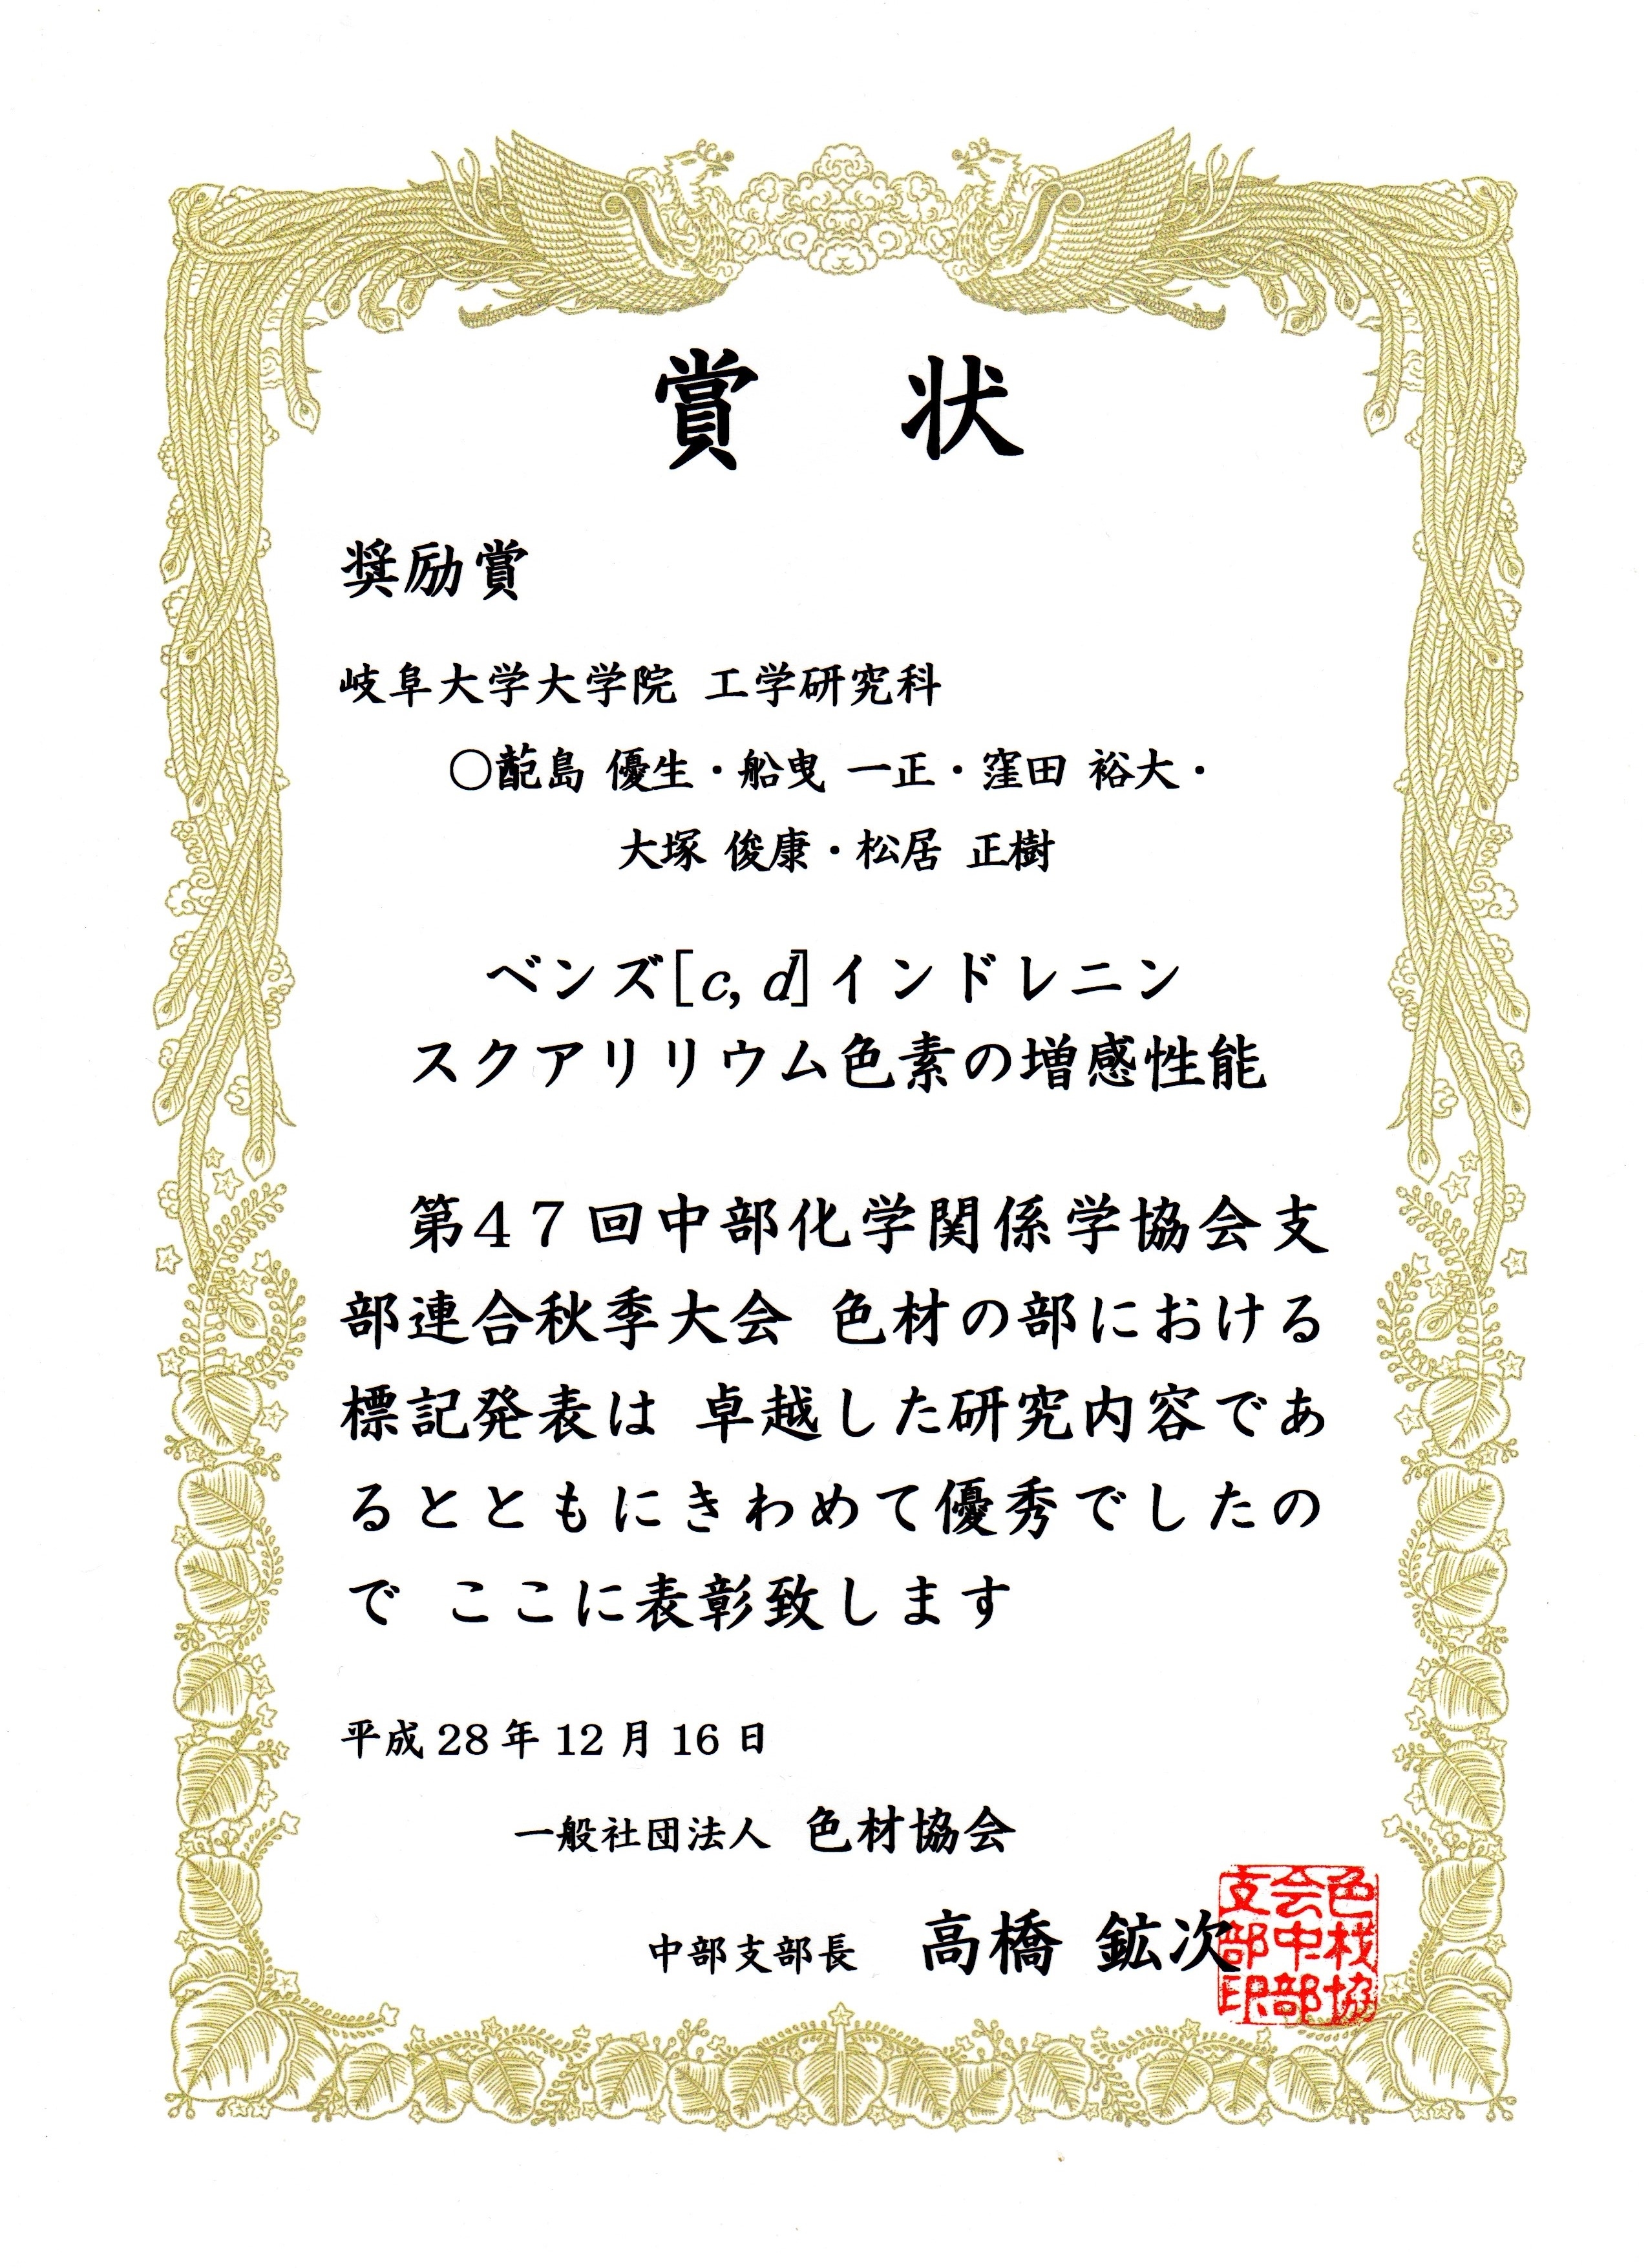 賞 状
奨励賞
岐阜大学大学院 工学研究科
〇蓜島 優生・船曳 一正・窪田 裕大・
大塚 俊康・松居 正樹
ベンズ[c, d]インドレニン
スクアリリウム色素の増感性能
第47回中部化学関係学協会支
部連合秋季大会 色材の部における
標記発表は 卓越した研究内容であ
るとともにきわめて優秀でしたの
で ここに表彰致します
平成 28 年 12 月 16 日
一般社団法人 色材協会
中部支部長 高橋 鉱次
色材協
会中部
支部印